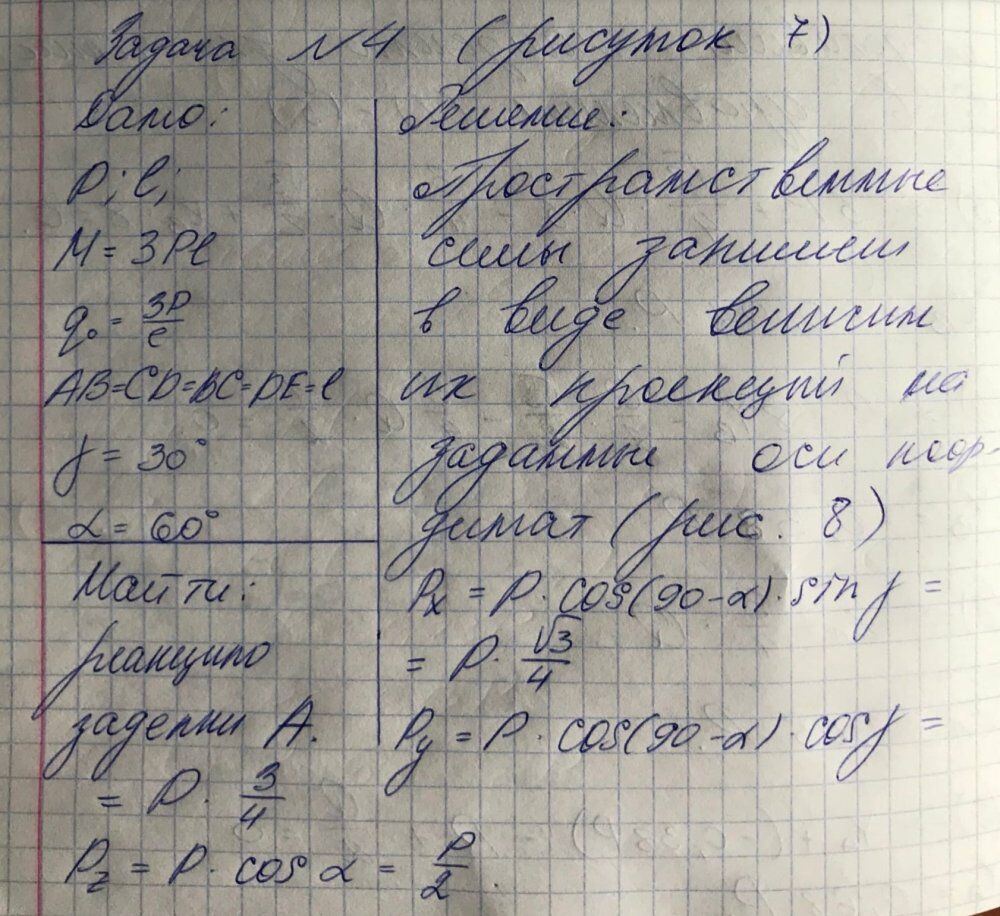 Задача №4 (рисунок 7)
Дано:
P; l;
M = 3Pl
q₀ = 3P/l
AB=CD=BC=DE=l
γ = 30°
α = 60°
Найти:
реакцию
заделки А.
Решение:
Пространственные
силы запишем
в виде величин
их проекций на
заданные оси коор-
динат (рис. 8)
Pₓ = P · cos(90-α) · sin γ =
= P · √3/4
Py = P · cos(90-α) · cos γ =
= P · 3/4
Pz = P · cos α = P/2